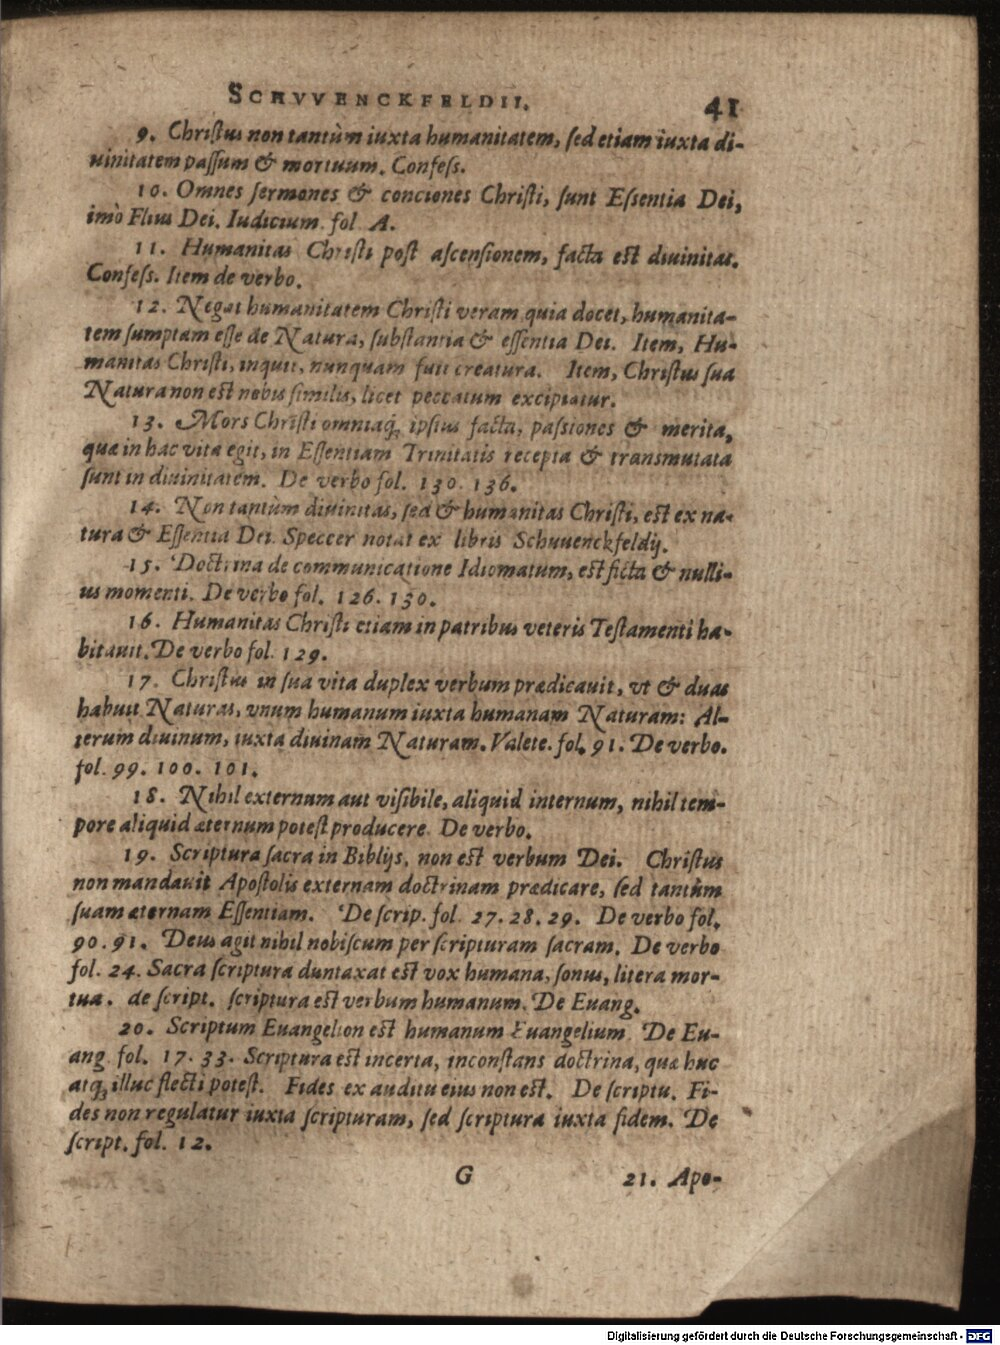 SCHVVENCKFELDII. 41
9. Christus non tantùm iuxta humanitatem, sed etiam iuxta di-
uinitatem passum & mortuum. Confess.
10. Omnes sermones & conciones Christi, sunt Essentia Dei,
imò Flius Dei. Iudicium. fol. A.
11. Humanitas Christi post ascensionem, facta est diuinitas.
Confess. Item de verbo.
12. Negat humanitatem Christi veram quia docet, humanita-
tem sumptam esse de Natura, substantia & essentia Dei. Item, Hu-
manitas Christi, inquit, nunquam fuit creatura. Item, Christus sua
Natura non est nobis similis, licet peccatum excipiatur.
13. Mors Christi omniaq́; ipsius facta, passiones & merita,
quæ in hac vita egit, in Essentiam Trinitatis recepta & transmutata
sunt in diuinitatem. De verbo fol. 130. 136.
14. Non tantùm diuinitas, sed & humanitas Christi, est ex na-
tura & Essentia Dei. Speccer notat ex libris Schuuenckfeldij.
15. Doctrina de communicatione Idiomatum, est ficta & nulli-
us momenti. De verbo fol. 126. 130.
16. Humanitas Christi etiam in patribus veteris Testamenti ha-
bitauit. De verbo fol. 129.
17. Christus in sua vita duplex verbum prædicauit, vt & duas
habuit Naturas, vnum humanum iuxta humanam Naturam: Al-
terum diuinum, iuxta diuinam Naturam. Valete. fol. 91. De verbo.
fol. 99. 100. 101.
18. Nihil externum aut visibile, aliquid internum, nihil tem-
pore aliquid æternum potest producere. De verbo.
19. Scriptura sacra in Biblijs, non est verbum Dei. Christus
non mandauit Apostolis externam doctrinam prædicare, sed tantùm
suam æternam Essentiam. De scrip. fol. 27. 28. 29. De verbo fol.
90. 91. Deus agit nihil nobiscum per scripturam sacram. De verbo
fol. 24. Sacra scriptura duntaxat est vox humana, sonus, litera mor-
tua. de script. scriptura est verbum humanum. De Euang.
20. Scriptum Euangelion est humanum Euangelium. De Eu-
ang. fol. 17. 33. Scriptura est incerta, inconstans doctrina, quæ huc
atq́; illuc flecti potest. Fides ex auditu eius non est. De scriptu. Fi-
des non regulatur iuxta scripturam, sed scriptura iuxta fidem. De
script. fol. 12.
G 21. Apo-
Digitalisierung gefördert durch die Deutsche Forschungsgemeinschaft - DFG